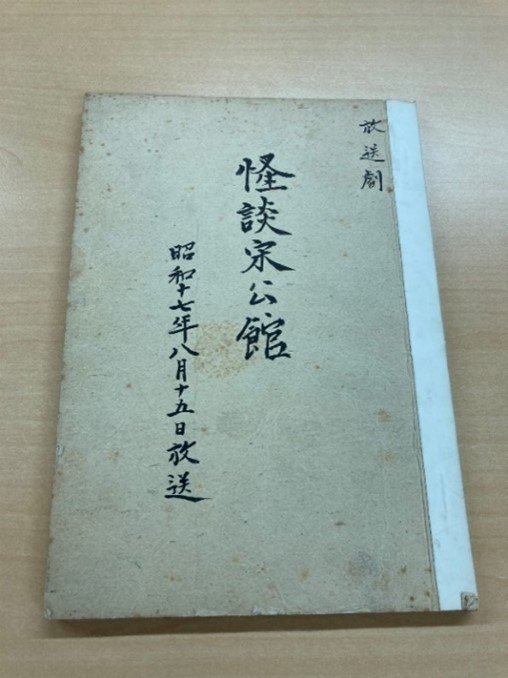 放送劇
怪談宋公館
昭和十七年八月十五日放送